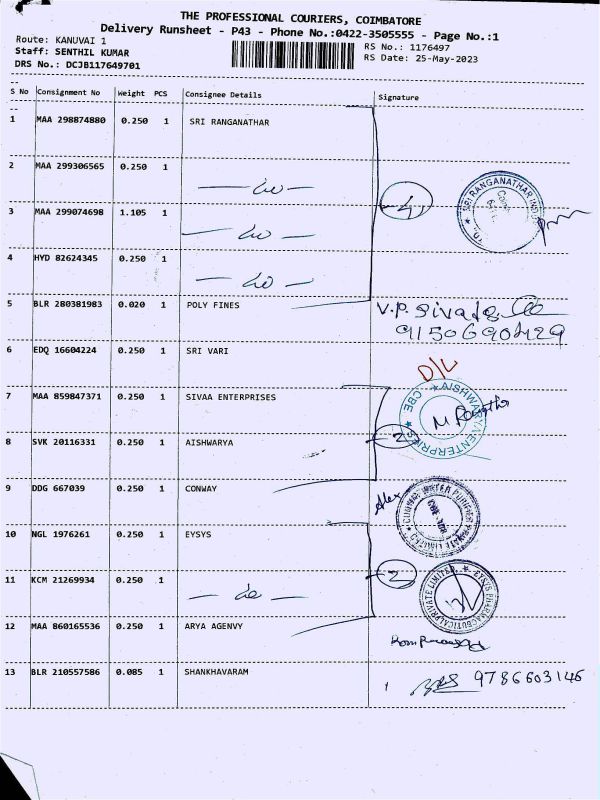 THE PROFESSIONAL COURIERS, COIMBATORE
Delivery Runsheet - P43 - Phone No.:0422-3505555 - Page No.:1
Route: KANUVAI 1
Staff: SENTHIL KUMAR
DRS No.: DCJB117649701
RS No.: 1176497
RS Date: 25-May-2023
S No Consignment No Weight PCS Consignee Details Signature
1 MAA 298874880 0.250 1 SRI RANGANATHAR
2 MAA 299306565 0.250 1
SRI RANGANATHAR
3 MAA 299074698 1.105 1
4
4 HYD 82624345 0.250 1
5 BLR 280381983 0.020 1 POLY FINES
V.P. Siva
6 EDQ 16604224 0.250 1 SRI VARI
D/L
7 MAA 859847371 0.250 1 SIVAA ENTERPRISES
AISHWARYA ENTERPRISES CBE
8 SVK 20116331 0.250 1 AISHWARYA
2
9 DDG 667039 0.250 1 CONWAY
Alex
CONWAY WATER PURIFIER PRIVATE LIMITED
10 NGL 1976261 0.250 1 EYSYS
11 KCM 21269934 0.250 1
2
EYSYS PHARMACEUTICAL PRIVATE LIMITED
12 MAA 860165536 0.250 1 ARYA AGENVY
13 BLR 210557586 0.085 1 SHANKHAVARAM
9786603146